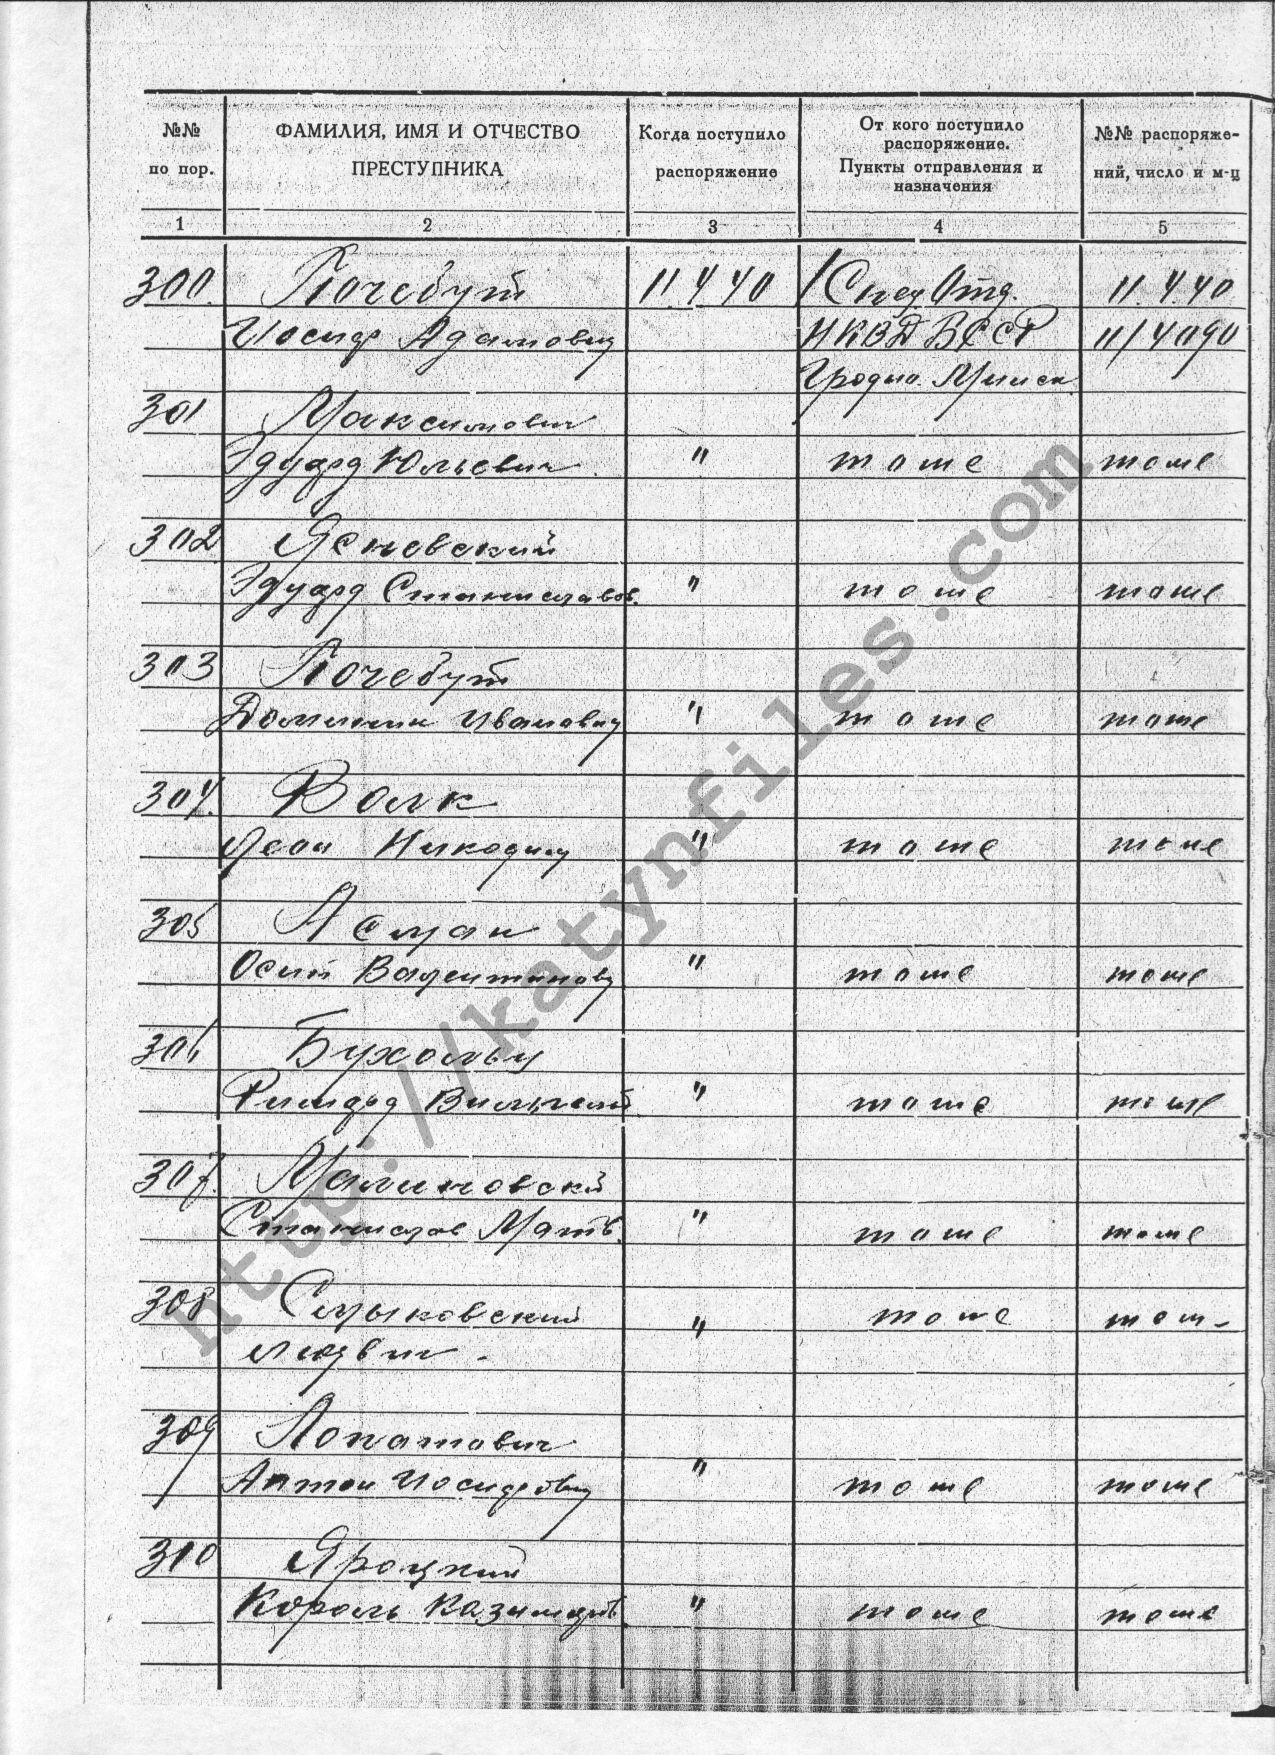 №№ по пор.
ФАМИЛИЯ, ИМЯ И ОТЧЕСТВО ПРЕСТУПНИКА
Когда поступило распоряжение
От кого поступило распоряжение. Пункты отправления и назначения
№№ распоряже- ний, число и м-ц
1 2 3 4 5
300. Почебут 11.4.40 1 Спец Отд. 11.4.40
Иосиф Адамович НКВД БССР 11/4090
Гродно. Минск
301 Максимович
Эдуард Юльевич " тоже тоже
302 Ясневский
Эдуард Станиславов. " тоже тоже
303 Почебут
Доминик Иванович " тоже тоже
304. Волк
Ясан Никодим " тоже тоже
305 Асман
Осип Валентинович " тоже тоже
306 Бухольц
Римард " тоже тоже
307. Малиновский
Станислав Матв. " тоже тоже
308 Смыковский " тоже тож-
Людвиг -
309 Лопатович
Антон Иосифович " тоже тоже
310 Яроцкий
Король Казимиров. " тоже тоже
http://katynfiles.com